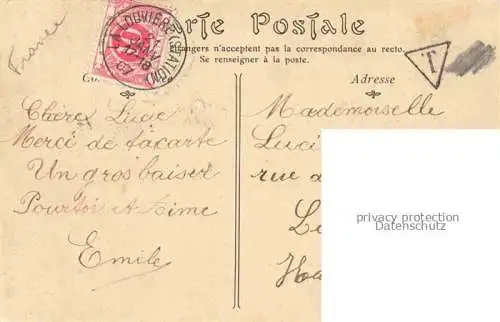 Carte Postale
Etrangers n'acceptent pas la correspondance au recto.
Se renseigner à la poste.
France
LOUVIÈRE (STATION)
T
Adresse
Chère Luce
Merci de ta carte
Un gros baiser
Pour toi et Aime
Emile
Mademoiselle
Luci
rue d
privacy protection
Datenschutz